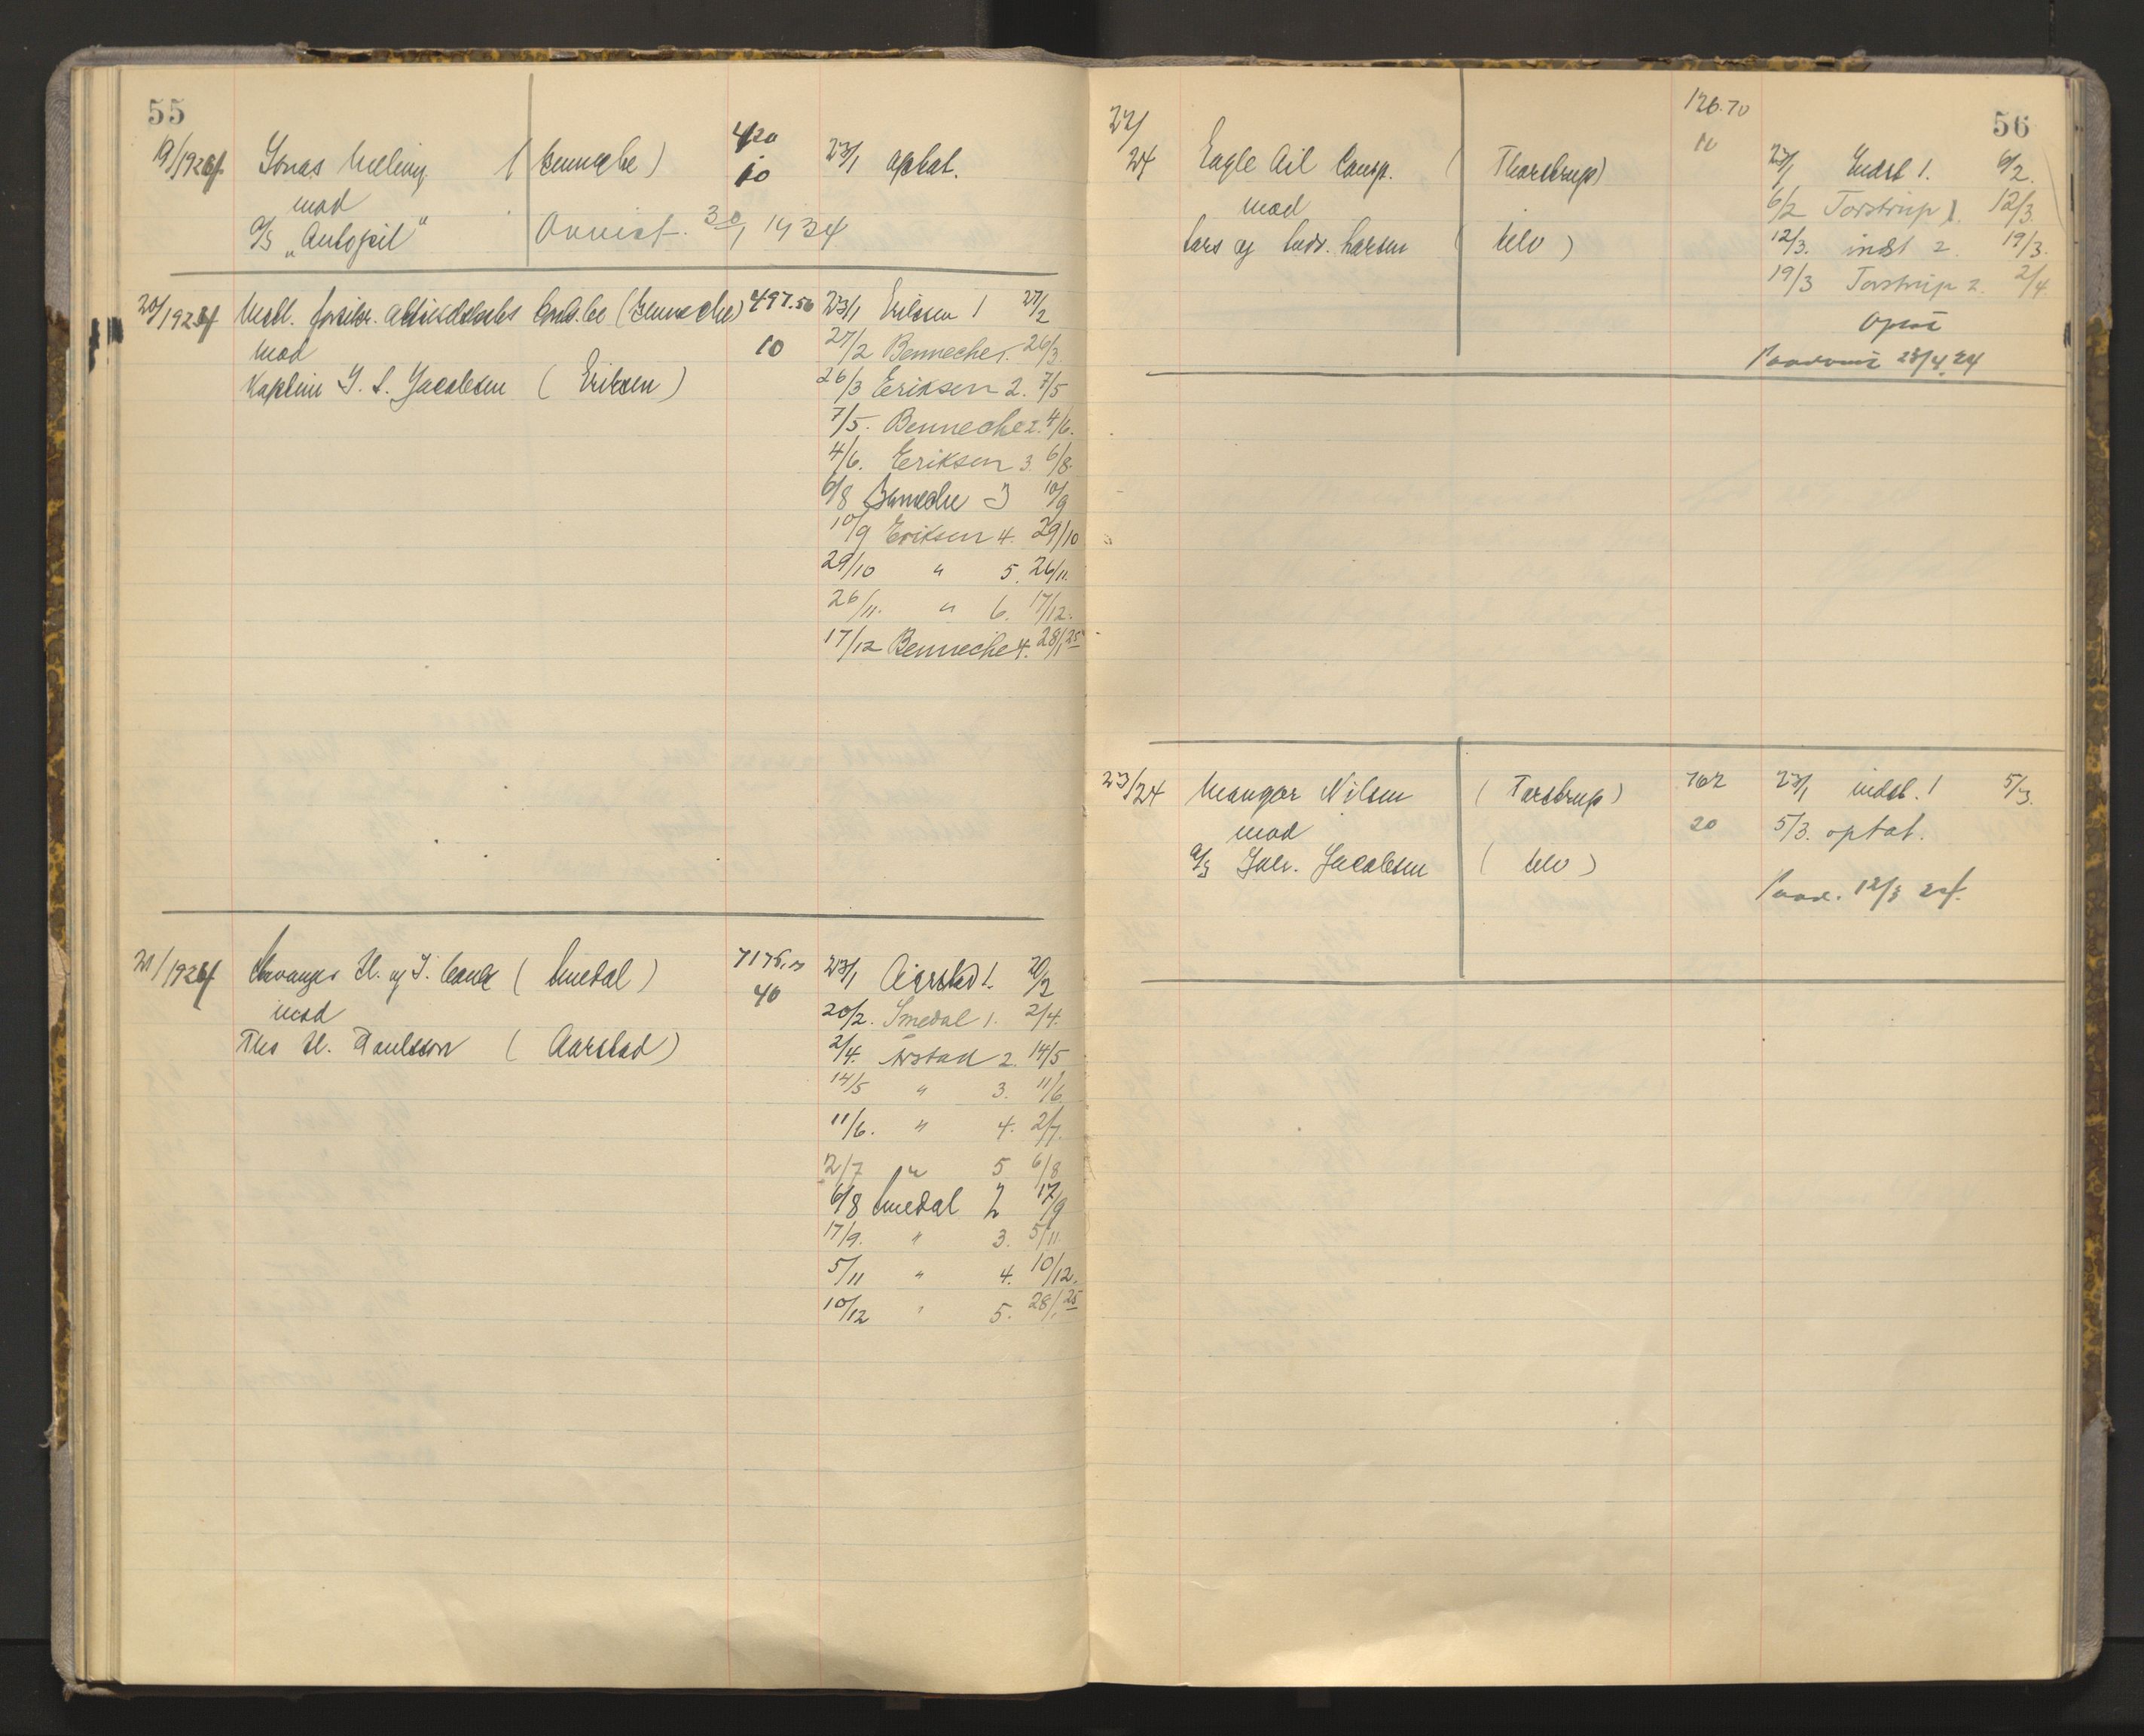 55
19/1924 Jonas Meling ( Benneche ) 420 23/1 optat.
mod 10
A/S „Autofeil" Avvist. 30/1 1934
20/1924 ( Benneche ) 497.50 23/1 Eriksen 1 27/2
mod 10 27/2 Benneche 1. 26/3
Kaptein J. S. Jacobsen ( Eriksen ) 26/3 Eriksen 2. 7/5
7/5. Benneche 2. 4/6.
4/6. Eriksen 3. 6/8.
6/8 Benneche 3 10/9
10/9 Eriksen 4. 29/10
29/10 " 5. 26/11.
26/11. " 6. 17/12.
17/12 Benneche 4. 28/1 25
21/1924 Stavanger H. og I. bank ( Smedal ) 23/1 Aarstad 1. 20/2
mod 40 20/2. Smedal 1. 2/4.
Ths H. Paulsson ( Aarstad ) 2/4. Arstad 2. 14/5
14/5 " 3. 11/6
11/6. " 4. 2/7.
2/7 " 5 6/8
6/8 Smedal 2 17/9
17/9. " 3. 5/11.
5/11 " 4. 10/12.
10/12 " 5. 28/1 25
56
22/24 Eagle Oil Comp. ( Thorstrup ) 126.70 23/1 Indst 1. 6/2.
mod 10 6/2 Torstrup 1. 12/3.
Lars og Ludv. Larsen ( selv ) 12/3. indst 2. 19/3.
19/3 Torstrup 2. 2/4.
Optat
23/4 24
23/24 Mangor Nilsen ( Torstrup ) 702 23/1 indst. 1 5/3.
mod 20 5/3. optat.
A/S Jac. Jacobsen ( selv )
12/3 24.